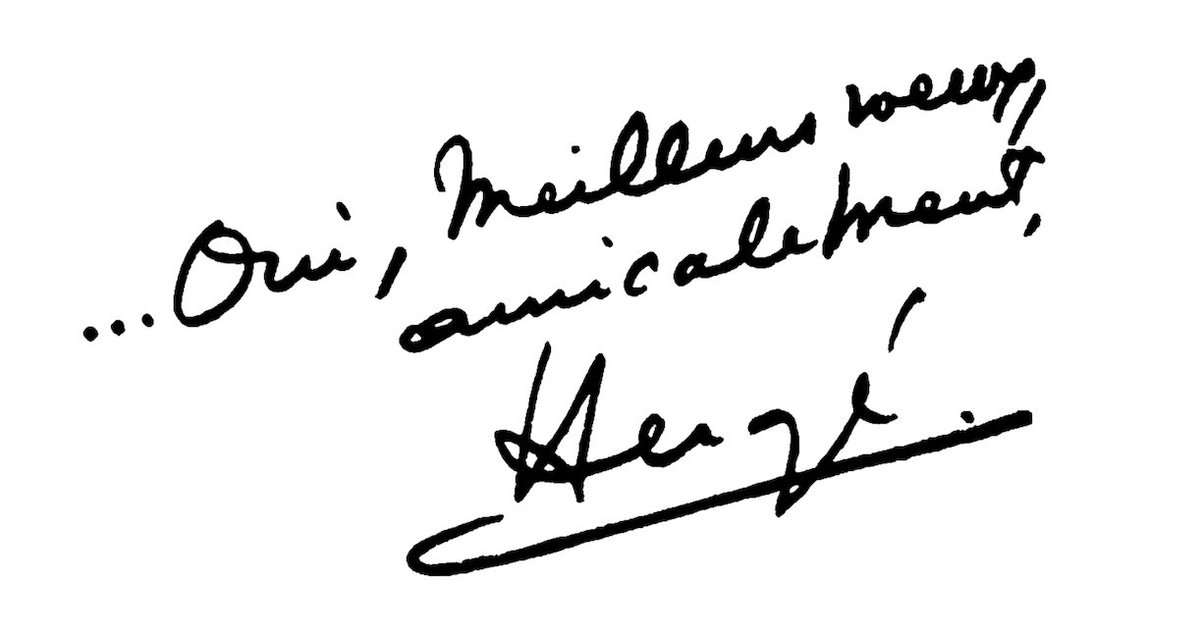 ...Oui, Meilleurs voeux,
amicalement,
Hergé.